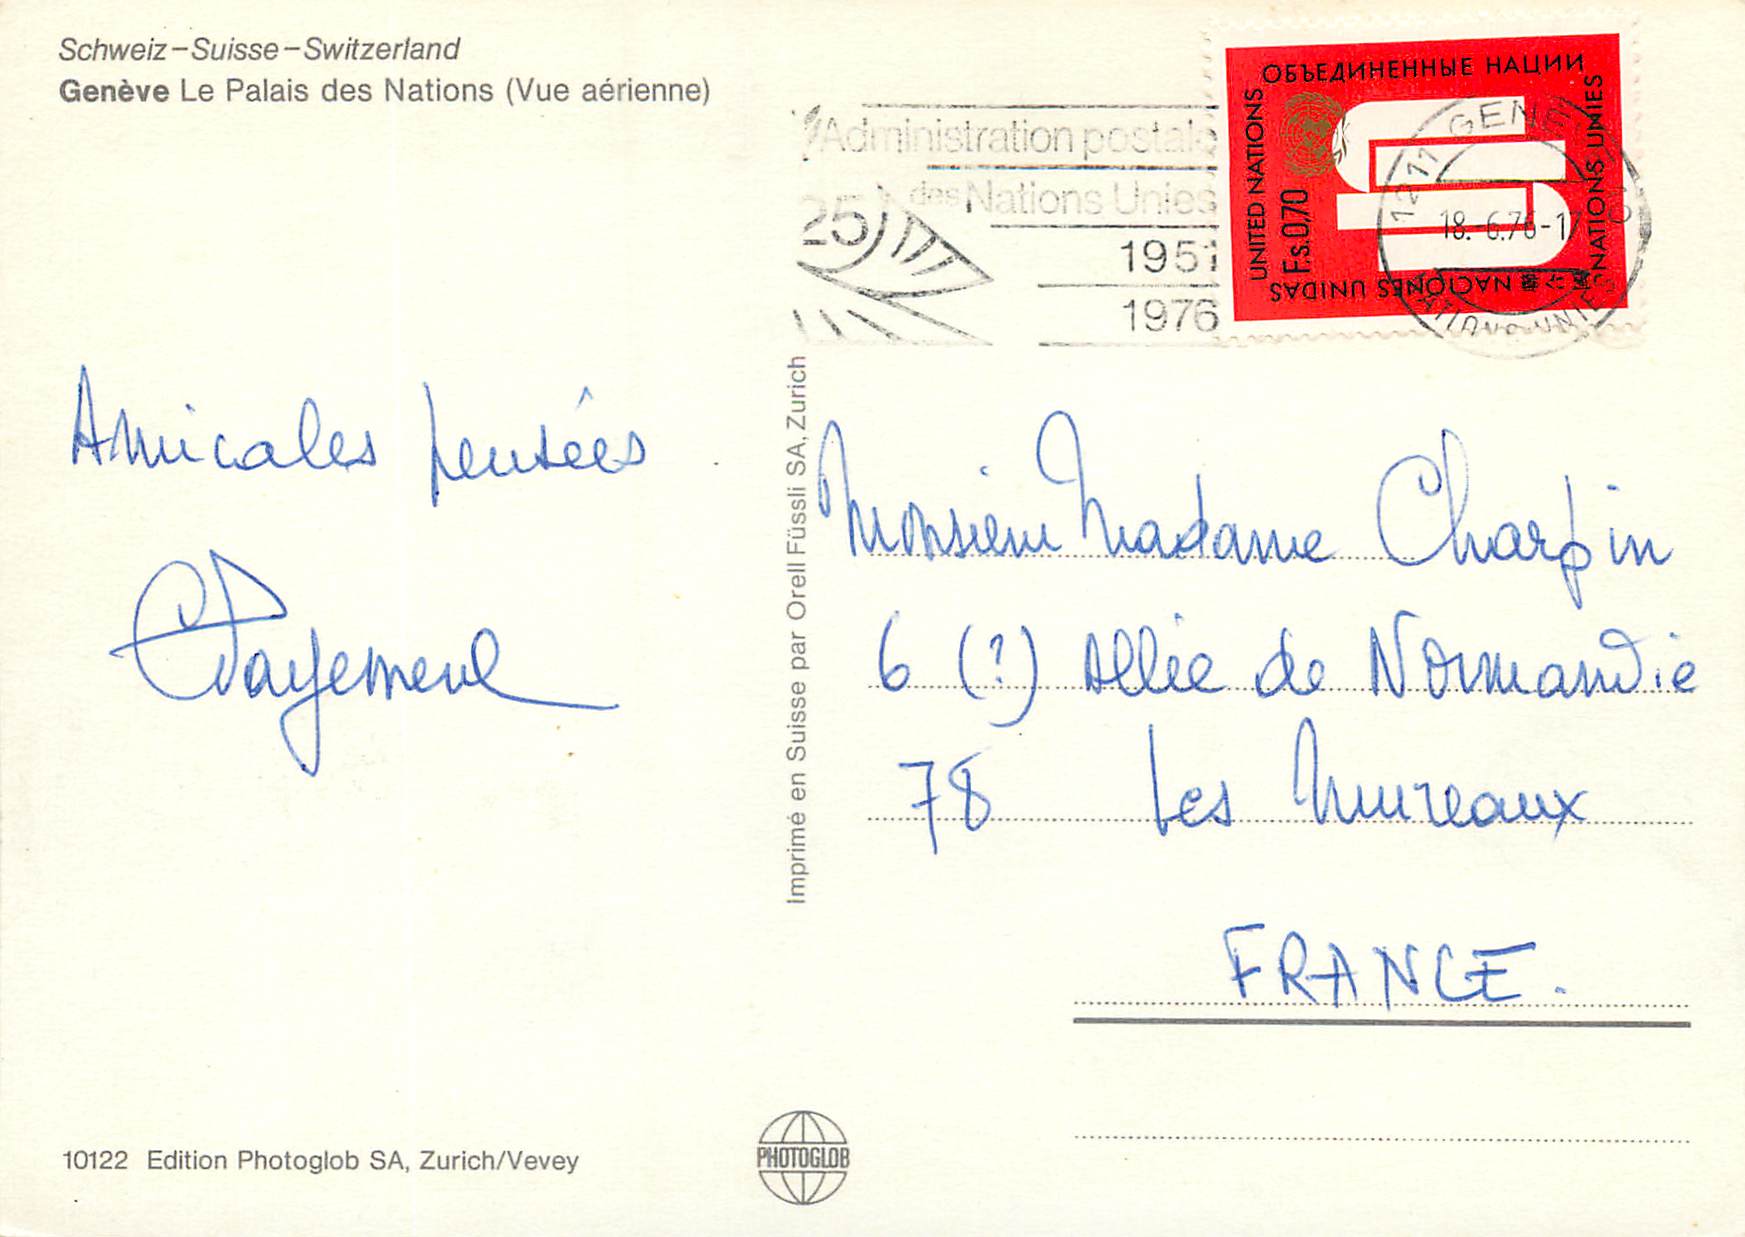 Schweiz–Suisse–Switzerland
Genève Le Palais des Nations (Vue aérienne)
Administration postale
des Nations Unies
25
1951
1976
ОБЪЕДИНЕННЫЕ НАЦИИ
UNITED NATIONS
F.s.0,70
NATIONS UNIES
NACIONES UNIDAS
1211 GENÈVE
18.-6.76-17
NATIONS UNIES
Amicales pensées
Monsieur Madame Charpin
6 (?) Allée de Normandie
78 Les Mureaux
FRANCE.
Imprimé en Suisse par Orell Füssli SA, Zurich
10122 Edition Photoglob SA, Zurich/Vevey
PHOTOGLOB